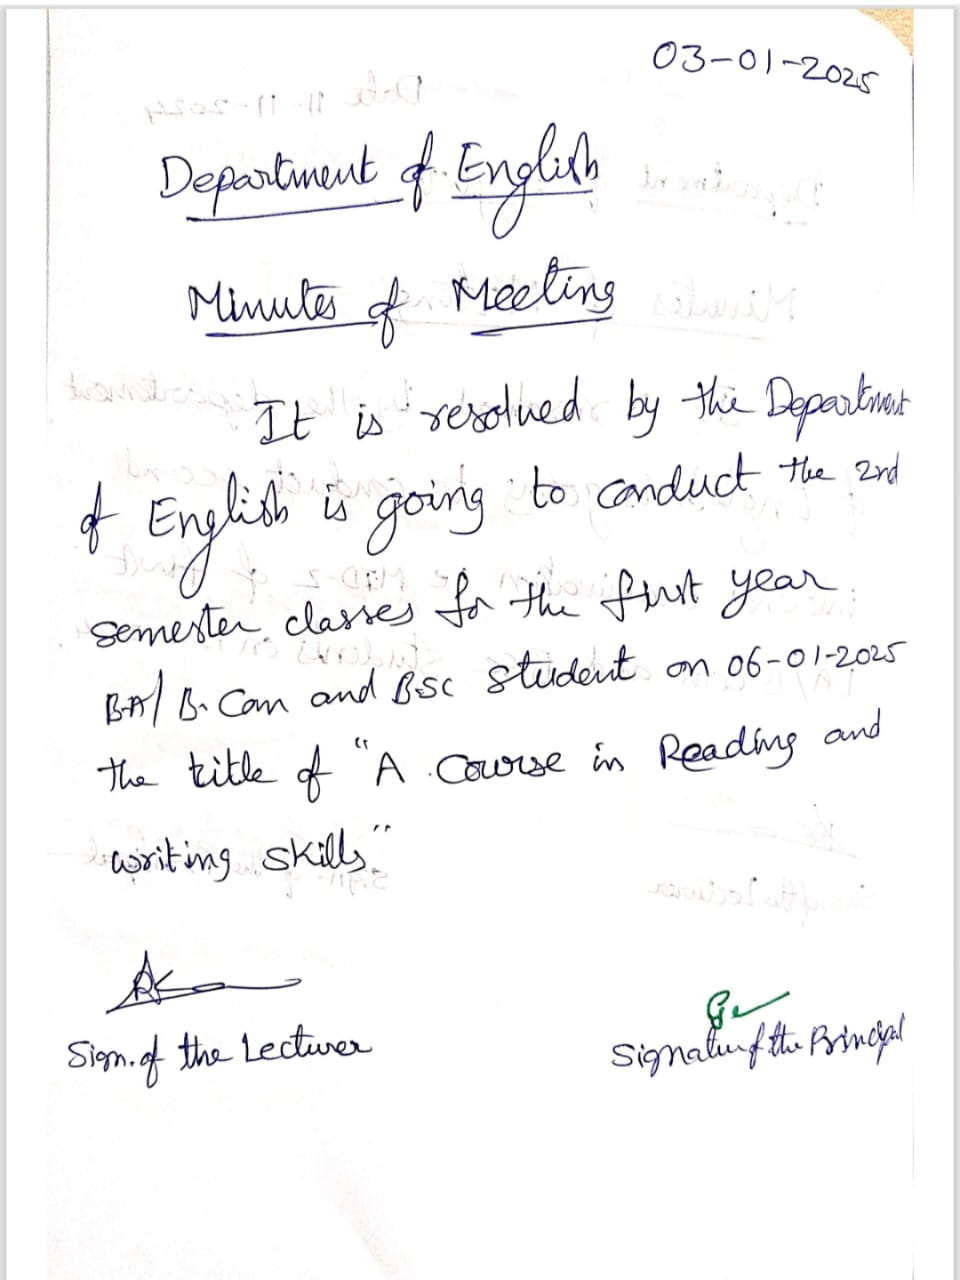 03-01-2025
Department of English
Minutes of Meeting
It is resolved by the Department
of English is going to conduct the 2nd
semester classes for the first year
B.A/ B.Com and BSC student on 06-01-2025
the title of "A Course in Reading and
writing skills"
Sign. of the Lecturer
Signature of the Principal